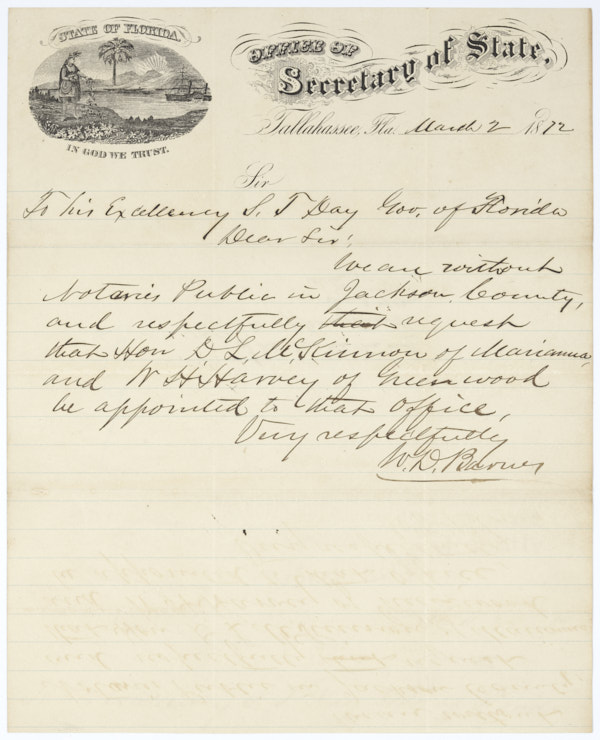 STATE OF FLORIDA.
IN GOD WE TRUST.
OFFICE OF
Secretary of State.
Tallahassee, Fla. March 2 1872
Sir
To his Excellency S. T Day Gov. of Florida
Dear Sir:
We are without
Notaries Public in Jackson County,
and respectfully that request
that Hon D. L. McKinnon of Marianna,
and W. H. Harvey of Greenwood
be appointed to that office,
Very respectfully
W. D. Barnes